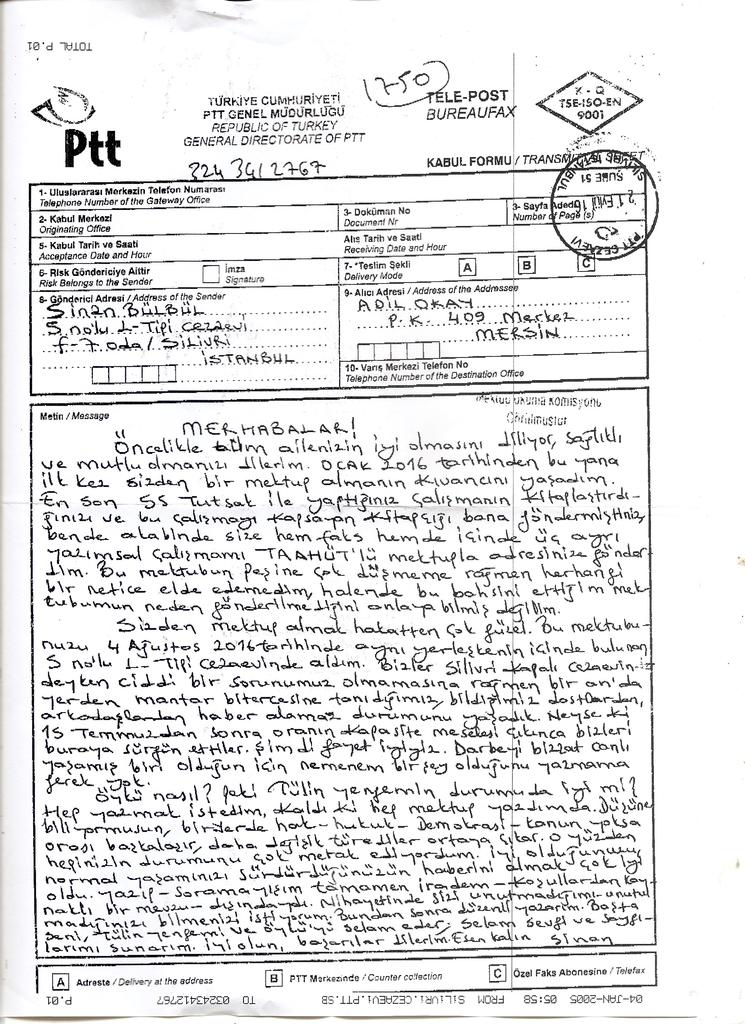 TOTAL P.01
1750
Ptt
TÜRKİYE CUMHURİYETİ
PTT GENEL MÜDÜRLÜĞÜ
REPUBLIC OF TURKEY
GENERAL DIRECTORATE OF PTT
TELE-POST
BUREAUFAX
K - Q
TSE-ISO-EN
9001
324 341 2767
KABUL FORMU / TRANSMISSION SHEET
ŞUBE 51
PTT CEZAEVİ
1- Uluslararası Merkezin Telefon Numarası
Telephone Number of the Gateway Office
2- Kabul Merkezi
Originating Office
3- Doküman No
Document Nr
3- Sayfa Adedi
Number of Page (s)
5- Kabul Tarih ve Saati
Acceptance Date and Hour
Alış Tarih ve Saati
Receiving Date and Hour
6- Risk Göndericiye Aittir
Risk Belongs to the Sender
İmza
Signature
7- *Teslim Şekli
Delivery Mode
A B C
8- Gönderici Adresi / Address of the Sender
Sinan BÜLBÜL
5 nolu L-Tipi cezaevi
F-7 oda / SİLİVRİ
İSTANBUL
9- Alıcı Adresi / Address of the Addressee
ADİL OKAY
P.K. 409 Merkez
MERSİN
10- Varış Merkezi Telefon No
Telephone Number of the Destination Office
Metin / Message
Mektup Okuma Komisyonu
Görülmüştür
MERHABALAR!
Öncelikle tüm ailenizin iyi olmasını diliyor, sağlıklı
ve mutlu olmanızı dilerim. OCAK 2016 tarihinden bu yana
ilk kez sizden bir mektup almanın kıvancını yaşadım.
En son 55 Tutsak ile yaptığınız çalışmanın kitaplaştırdı-
ğınızı ve bu çalışmayı kapsayan kitapçığı bana göndermiştiniz,
bende akabinde size hem faks hemde içinde üç ayrı
yazımsal çalışmamı TAAHÜT'lü mektupla adresinize gönder-
dim. Bu mektubun peşine çok düşmeme rağmen herhangi
bir netice elde edemedim, halende bu bahsini ettiğim mek-
tubumun neden gönderilmediğini anlaya bilmiş değilim.
Sizden mektup almak hakatten çok güzel. Bu mektubu-
nuzu 4 Ağustos 2016 tarihinde aynı yerleşkenin içinde bulunan
5 nolu L-Tipi cezaevinde aldım. Bizler Silivri kapalı cezaevin-
deyken ciddi bir sorunumuz olmamasına rağmen bir an'da
yerden mantar bitercesine tanıdığımız, bildiğimiz dostlardan,
arkadaşlardan haber alamaz durumunu yaşadık. Neyse ki
15 Temmuzdan sonra oranın kapasite meselesi çıkınca bizleri
buraya sürgün ettiler. Şimdi gayet iyiyiz. Darbeyi bizzat canlı
yaşamış biri olduğun için nemenem bir şey olduğunu yazmama
gerek yok.
Öykü nasıl? Peki Tülin yengemin durumuda iyi mi?
Hep yazmak istedim, kaldı ki hep mektup yazdımda. Düşüne
biliyormusun, bir yerde hak-hukuk-Demokrasi-kanun yoksa
orası başkalaşır, daha değişik türediler ortaya çıkar. O yüzden
hepinizin durumunu çok merak ediyordum. İyi olduğunuzu,
normal yaşamınızı sürdürdüğünüzün haberini almak çok iyi
oldu. yazıp-soramayışım tamamen iradem-koşullardan kay-
naklı bir mevzu-dışındaydı. Nihayetinde sizi unutmadığımı-unutul
madığınızı bilmenizi istiyorum. Bundan sonra düzenli yazarım. Başta
seni, Tülin yengemi ve öykü'yü selam eder, selam sevgi ve saygı-
larımı sunarım. iyi olun, başarılar dilerim. Esen kalın Sinan
A Adreste / Delivery at the address
B PTT Merkezinde / Counter collection
C Özel Faks Abonesine / Telefax
04-JAN-2005 05:58 FROM SiLiVRi.CEZAEVi.PTT.SB TO 03243412767 P.01